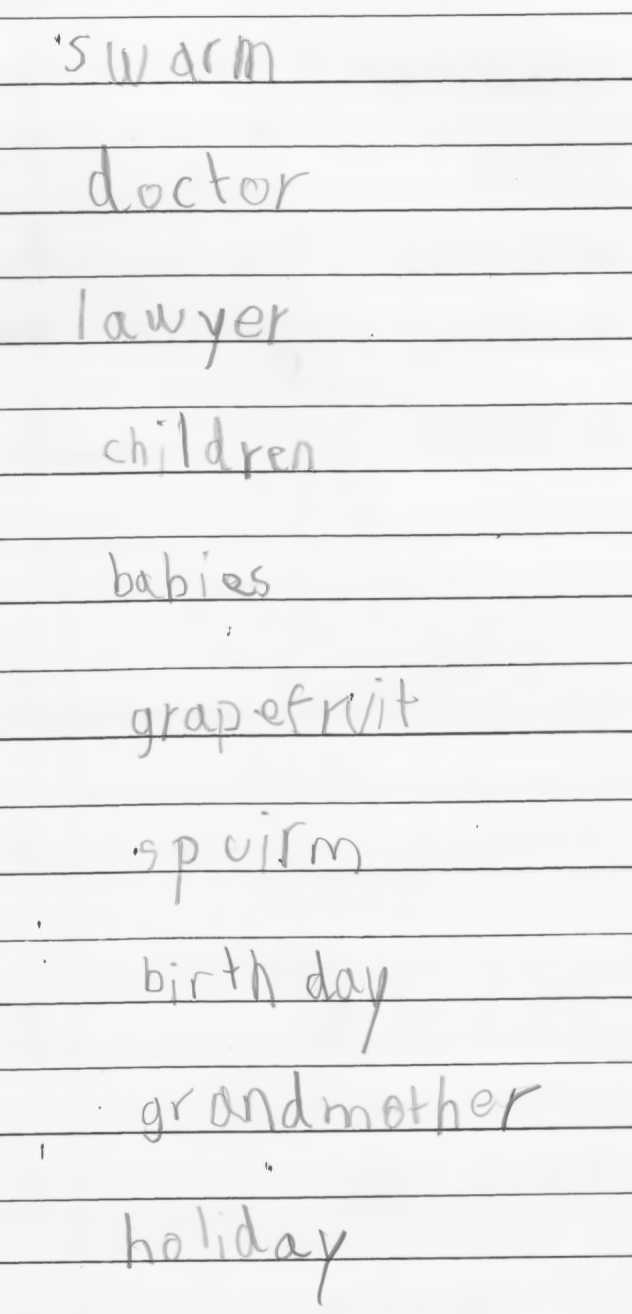 swarm
doctor
lawyer
children
babies
grapefruit
spuirm
birth day
grandmother
holiday